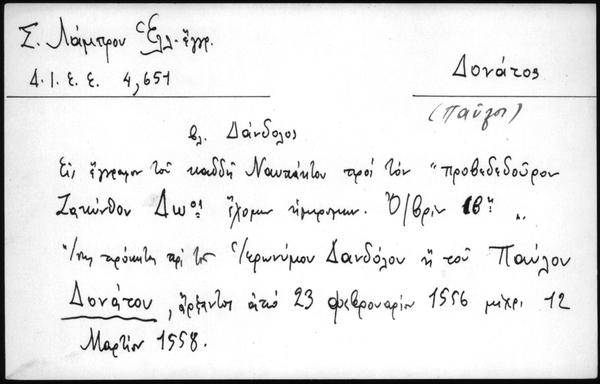 Σ. Λάμπρου Ἑλλ. ἔγγρ.
Δ.Ι.Ε.Ε. 4,651
Δονάτος
(Παῦλος)
βλ. Δάνδολος
Εἰς ἔγγραφον τοῦ καδδῆ Ναυπάκτου πρὸς τὸν "προβεδεδοῦρον
Ζακύνθου ἔχομεν Ὀ/βριν
πρόκειται περὶ τοῦ Ἱερωνύμου Δανδόλου ἢ τοῦ Παύλου
Δονάτου, ἄρξαντος ἀπὸ 23 φεβρουαρίου 1556 μέχρι 12
Μαρτίου 1558.